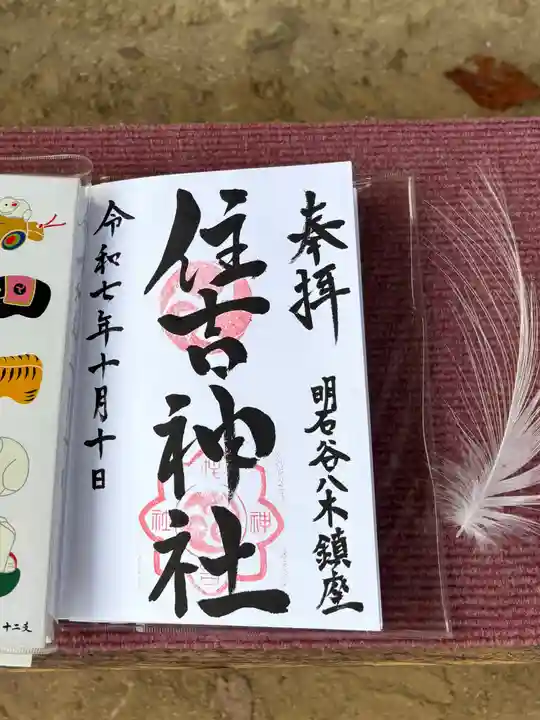 奉拝
明石谷八木鎮座
住吉神社
令和七年十月十日
十二支